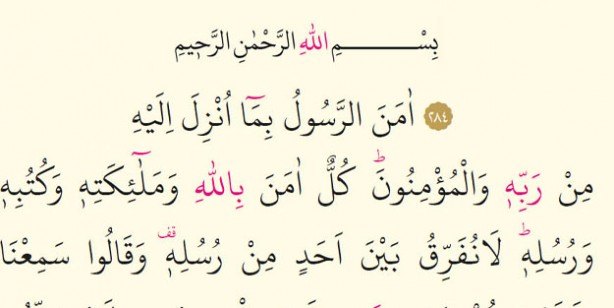 بِسْمِ اللهِ الرَّحْمٰنِ الرَّح۪يمِ
﴿٢٨٤﴾ اٰمَنَ الرَّسُولُ بِمَٓا اُنْزِلَ اِلَيْهِ
مِنْ رَبِّه۪ وَالْمُؤْمِنُونَۜ كُلٌّ اٰمَنَ بِاللهِ وَمَلٰٓئِكَتِه۪ وَكُتُبِه۪
وَرُسُلِه۪ۜ لَانُفَرِّقُ بَيْنَ اَحَدٍ مِنْ رُسُلِه۪ۚ وَقَالُوا سَمِعْنَا